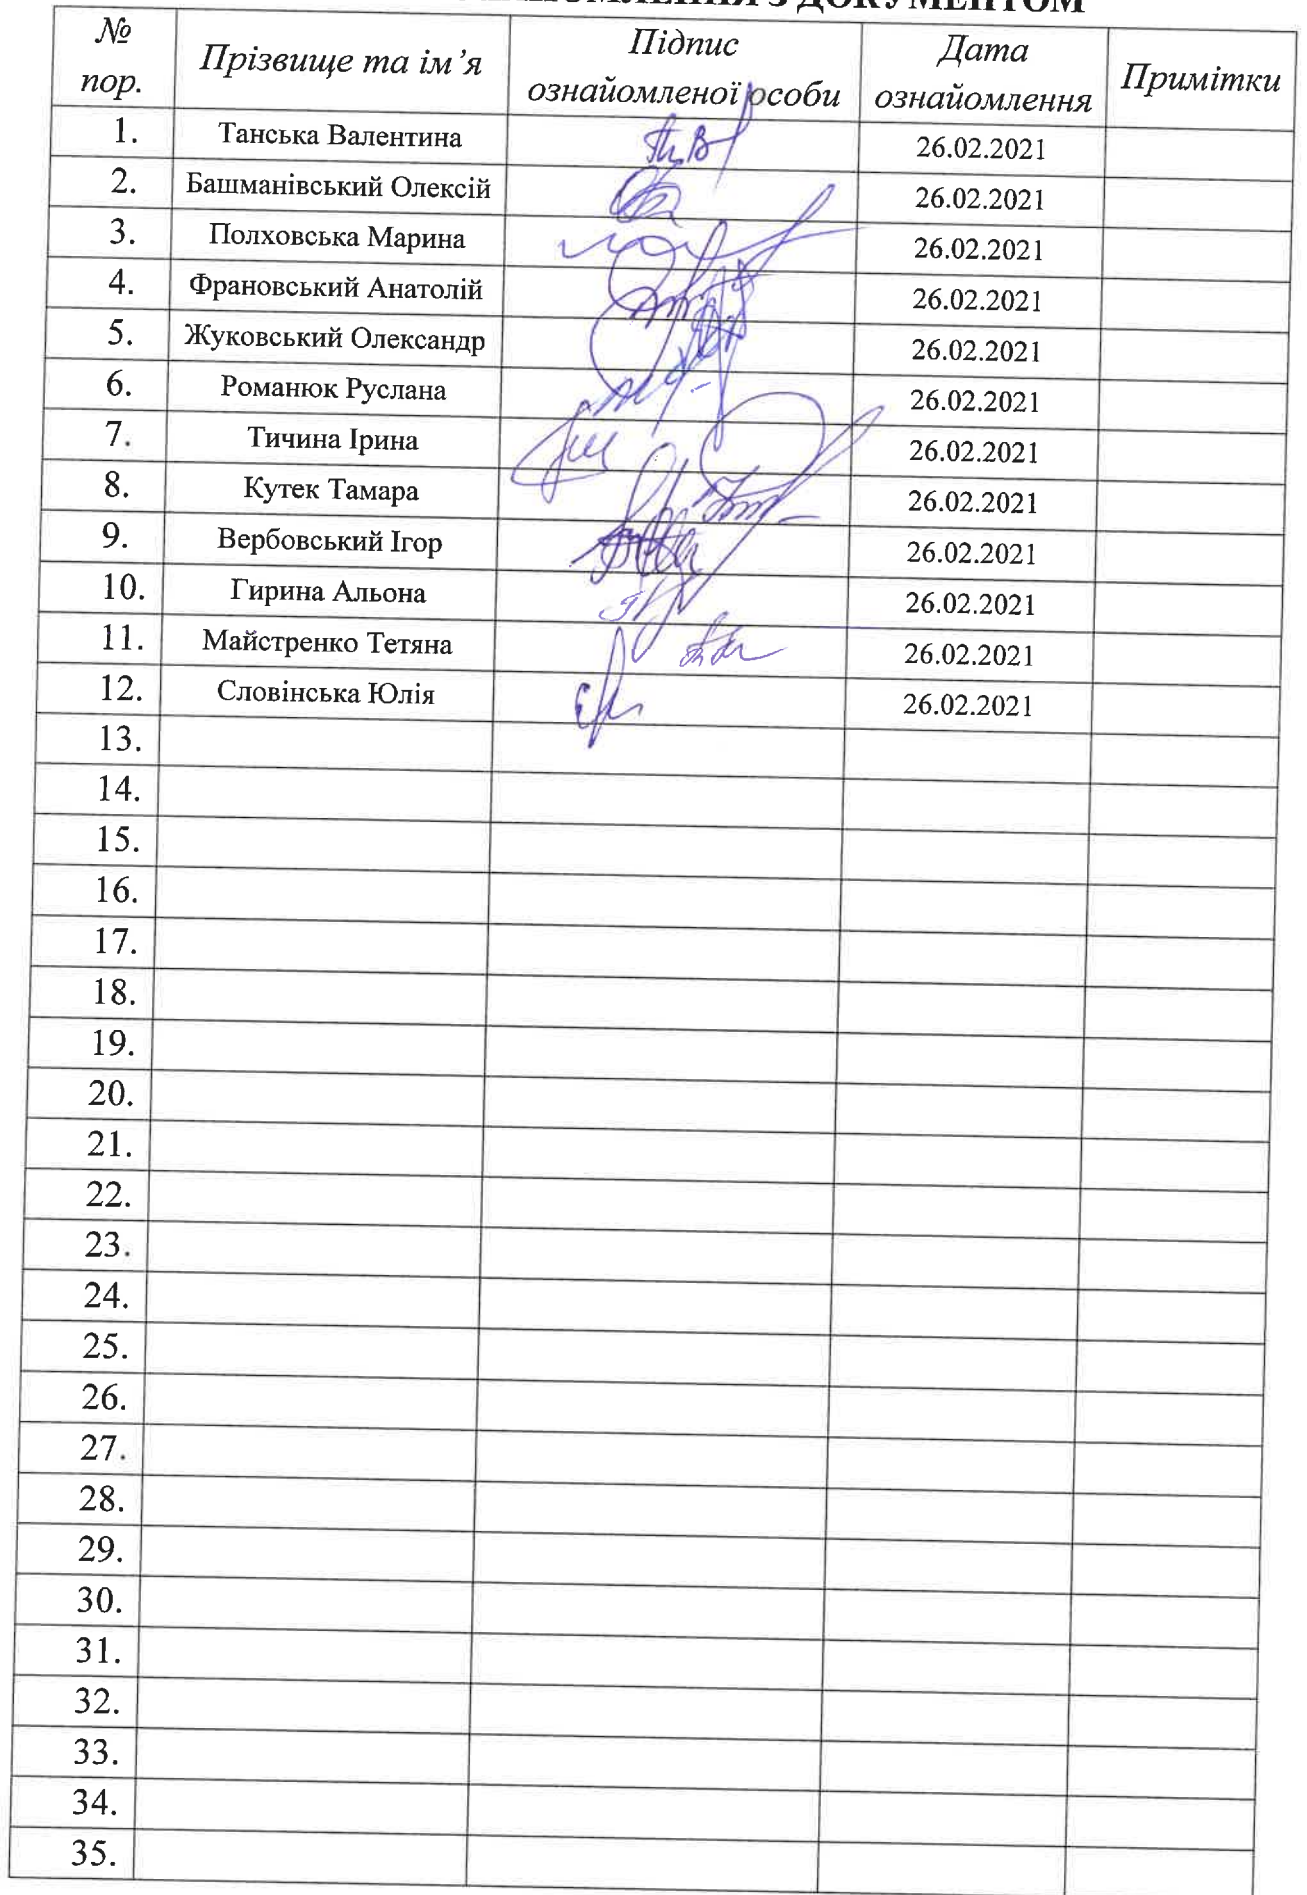 З ДОКУМЕНТОМ
№ пор. Прізвище та ім’я Підпис ознайомленої особи Дата ознайомлення Примітки
1. Танська Валентина 26.02.2021
2. Башманівський Олексій 26.02.2021
3. Полховська Марина 26.02.2021
4. Франовський Анатолій 26.02.2021
5. Жуковський Олександр 26.02.2021
6. Романюк Руслана 26.02.2021
7. Тичина Ірина 26.02.2021
8. Кутек Тамара 26.02.2021
9. Вербовський Ігор 26.02.2021
10. Гирина Альона 26.02.2021
11. Майстренко Тетяна 26.02.2021
12. Словінська Юлія 26.02.2021
13.
14.
15.
16.
17.
18.
19.
20.
21.
22.
23.
24.
25.
26.
27.
28.
29.
30.
31.
32.
33.
34.
35.